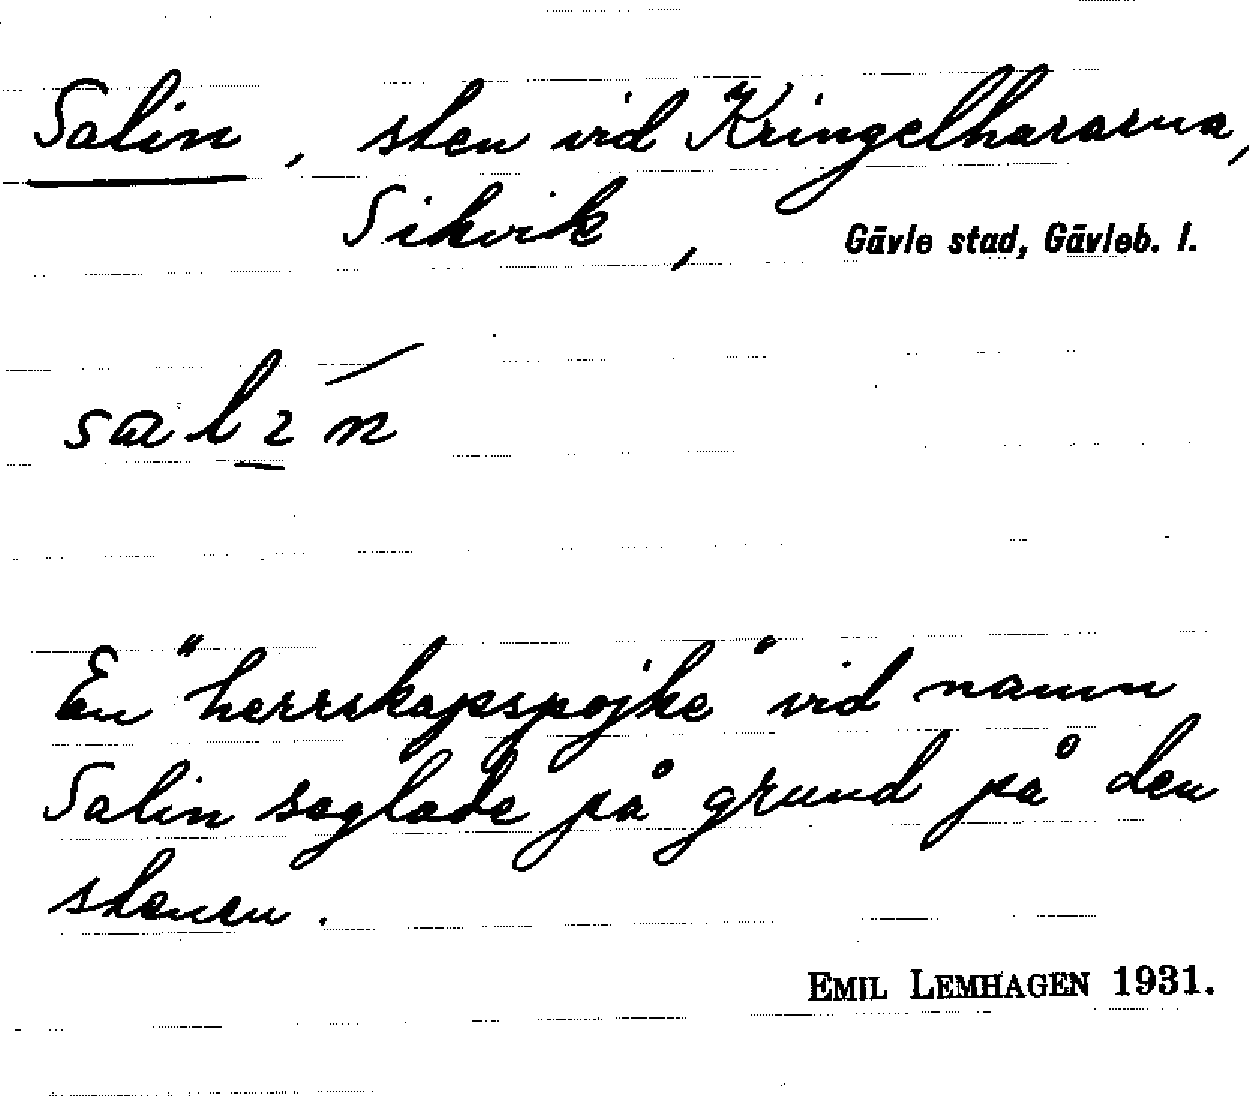 Salin, sten vid Kringelhararna,
Sikvik, Gävle stad, Gävleb. l.
En "herrskapspojke" vid namn
Salin seglade på grund på den
stenen.
EMIL LEMHAGEN 1931.